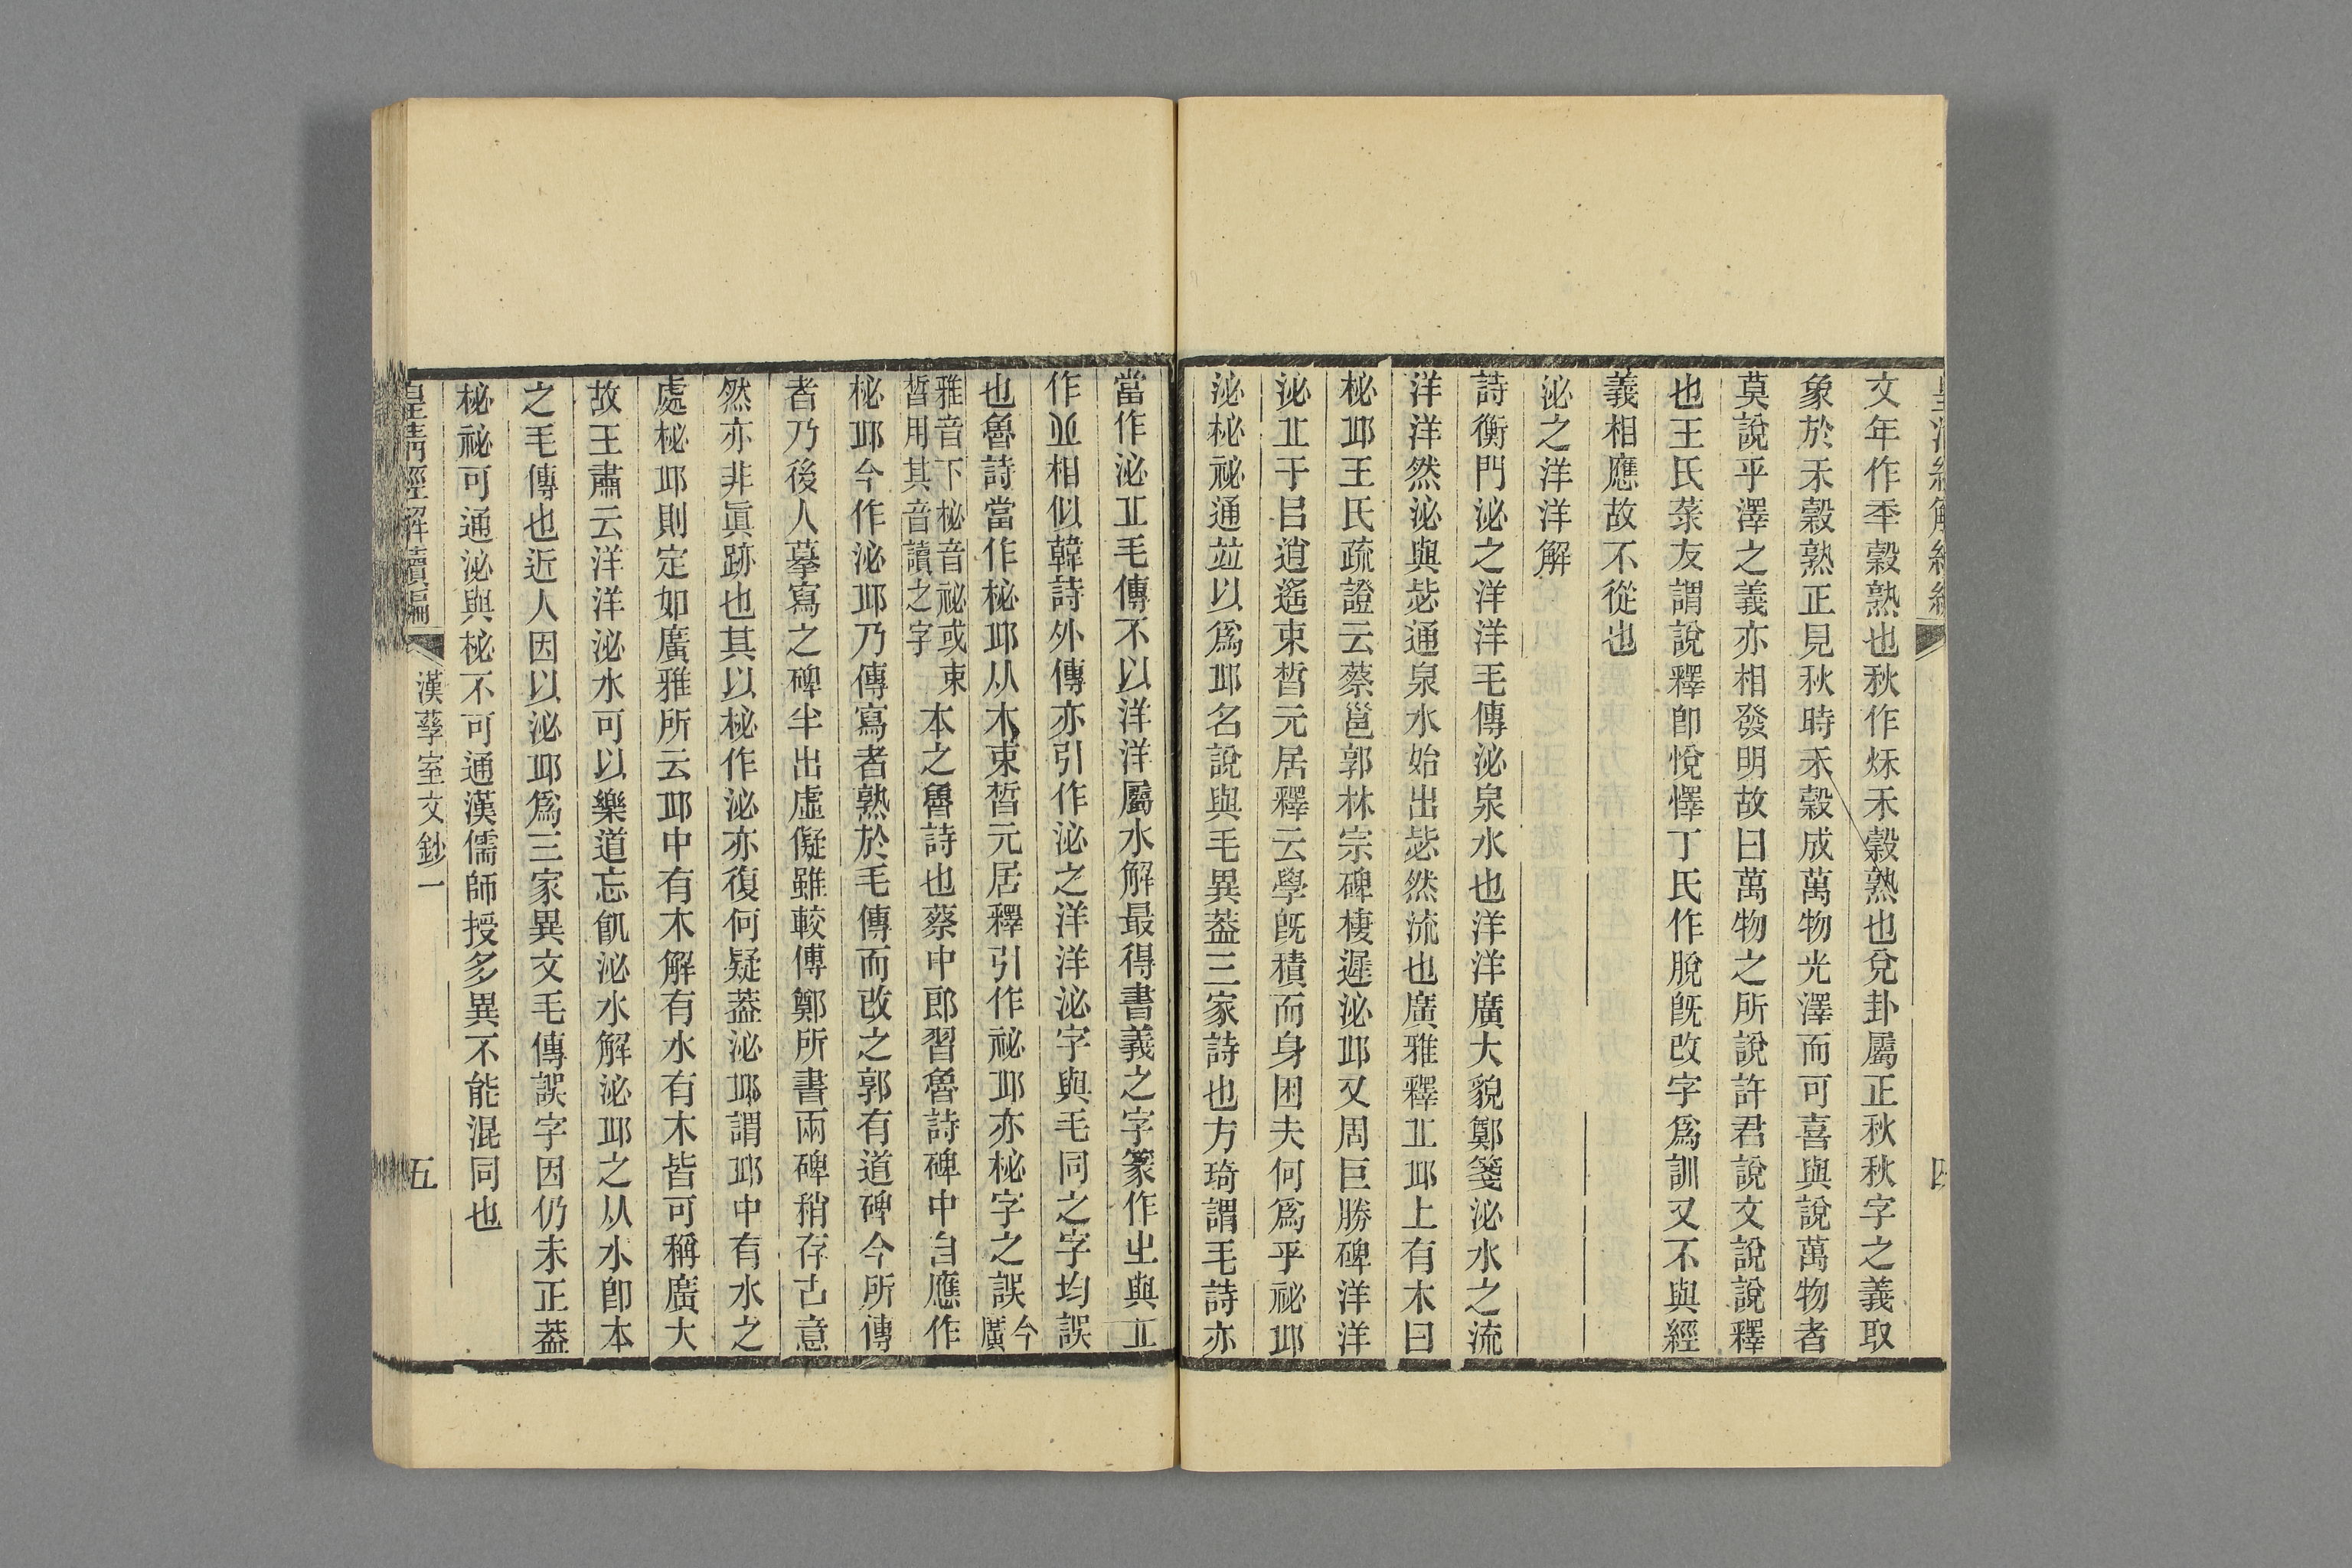 皇清經解續編
四
文年作秊穀熟也秋作烁禾穀熟也兌卦屬正秋秋字之義取
象於禾穀熟正見秋時禾穀成萬物光澤而可喜與說萬物者
莫說乎澤之義亦相發明故曰萬物之所說許君說文說說釋
也王氏菉友謂說釋卽悅懌丁氏作脫旣改字爲訓又不與經
義相應故不從也
泌之洋洋解
詩衡門泌之洋洋毛傳泌泉水也洋洋廣大貌鄭箋泌水之流
洋洋然泌與毖通泉水始出毖然流也廣雅釋丠邱上有木曰
柲邱王氏疏證云蔡邕郭林宗碑棲遲泌邱又周巨勝碑洋洋
泌丠于㠯逍遙束晳元居釋云學旣積而身困夫何爲乎祕邱
泌柲祕通竝以爲邱名說與毛異葢三家詩也方琦謂毛詩亦
當作泌丠毛傳不以洋洋屬水解最得書義之字篆作㞢與丠
作相似韓詩外傳亦引作泌之洋洋泌字與毛同之字均誤
也魯詩當作柲邱从木束晳元居釋引作祕邱亦柲字之誤今廣
雅音下柲音祕或束晳用其音讀之字本之魯詩也蔡中郎習魯詩碑中自應作
柲邱今作泌邱乃傳寫者熟於毛傳而改之郭有道碑今所傳
者乃後人摹寫之碑半出虛儗雖較傅鄭所書兩碑稍存古意
然亦非眞跡也其以柲作泌亦復何疑葢泌邱謂邱中有水之
處柲邱則定如廣雅所云邱中有木解有水有木皆可稱廣大
故王肅云洋洋泌水可以樂道忘飢泌水解泌邱之从水卽本
之毛傳也近人因以泌邱爲三家異文毛傳誤字因仍未正葢
柲祕可通泌與柲不可通漢儒師授多異不能混同也
皇淸經解續編
漢孶室文鈔一
五